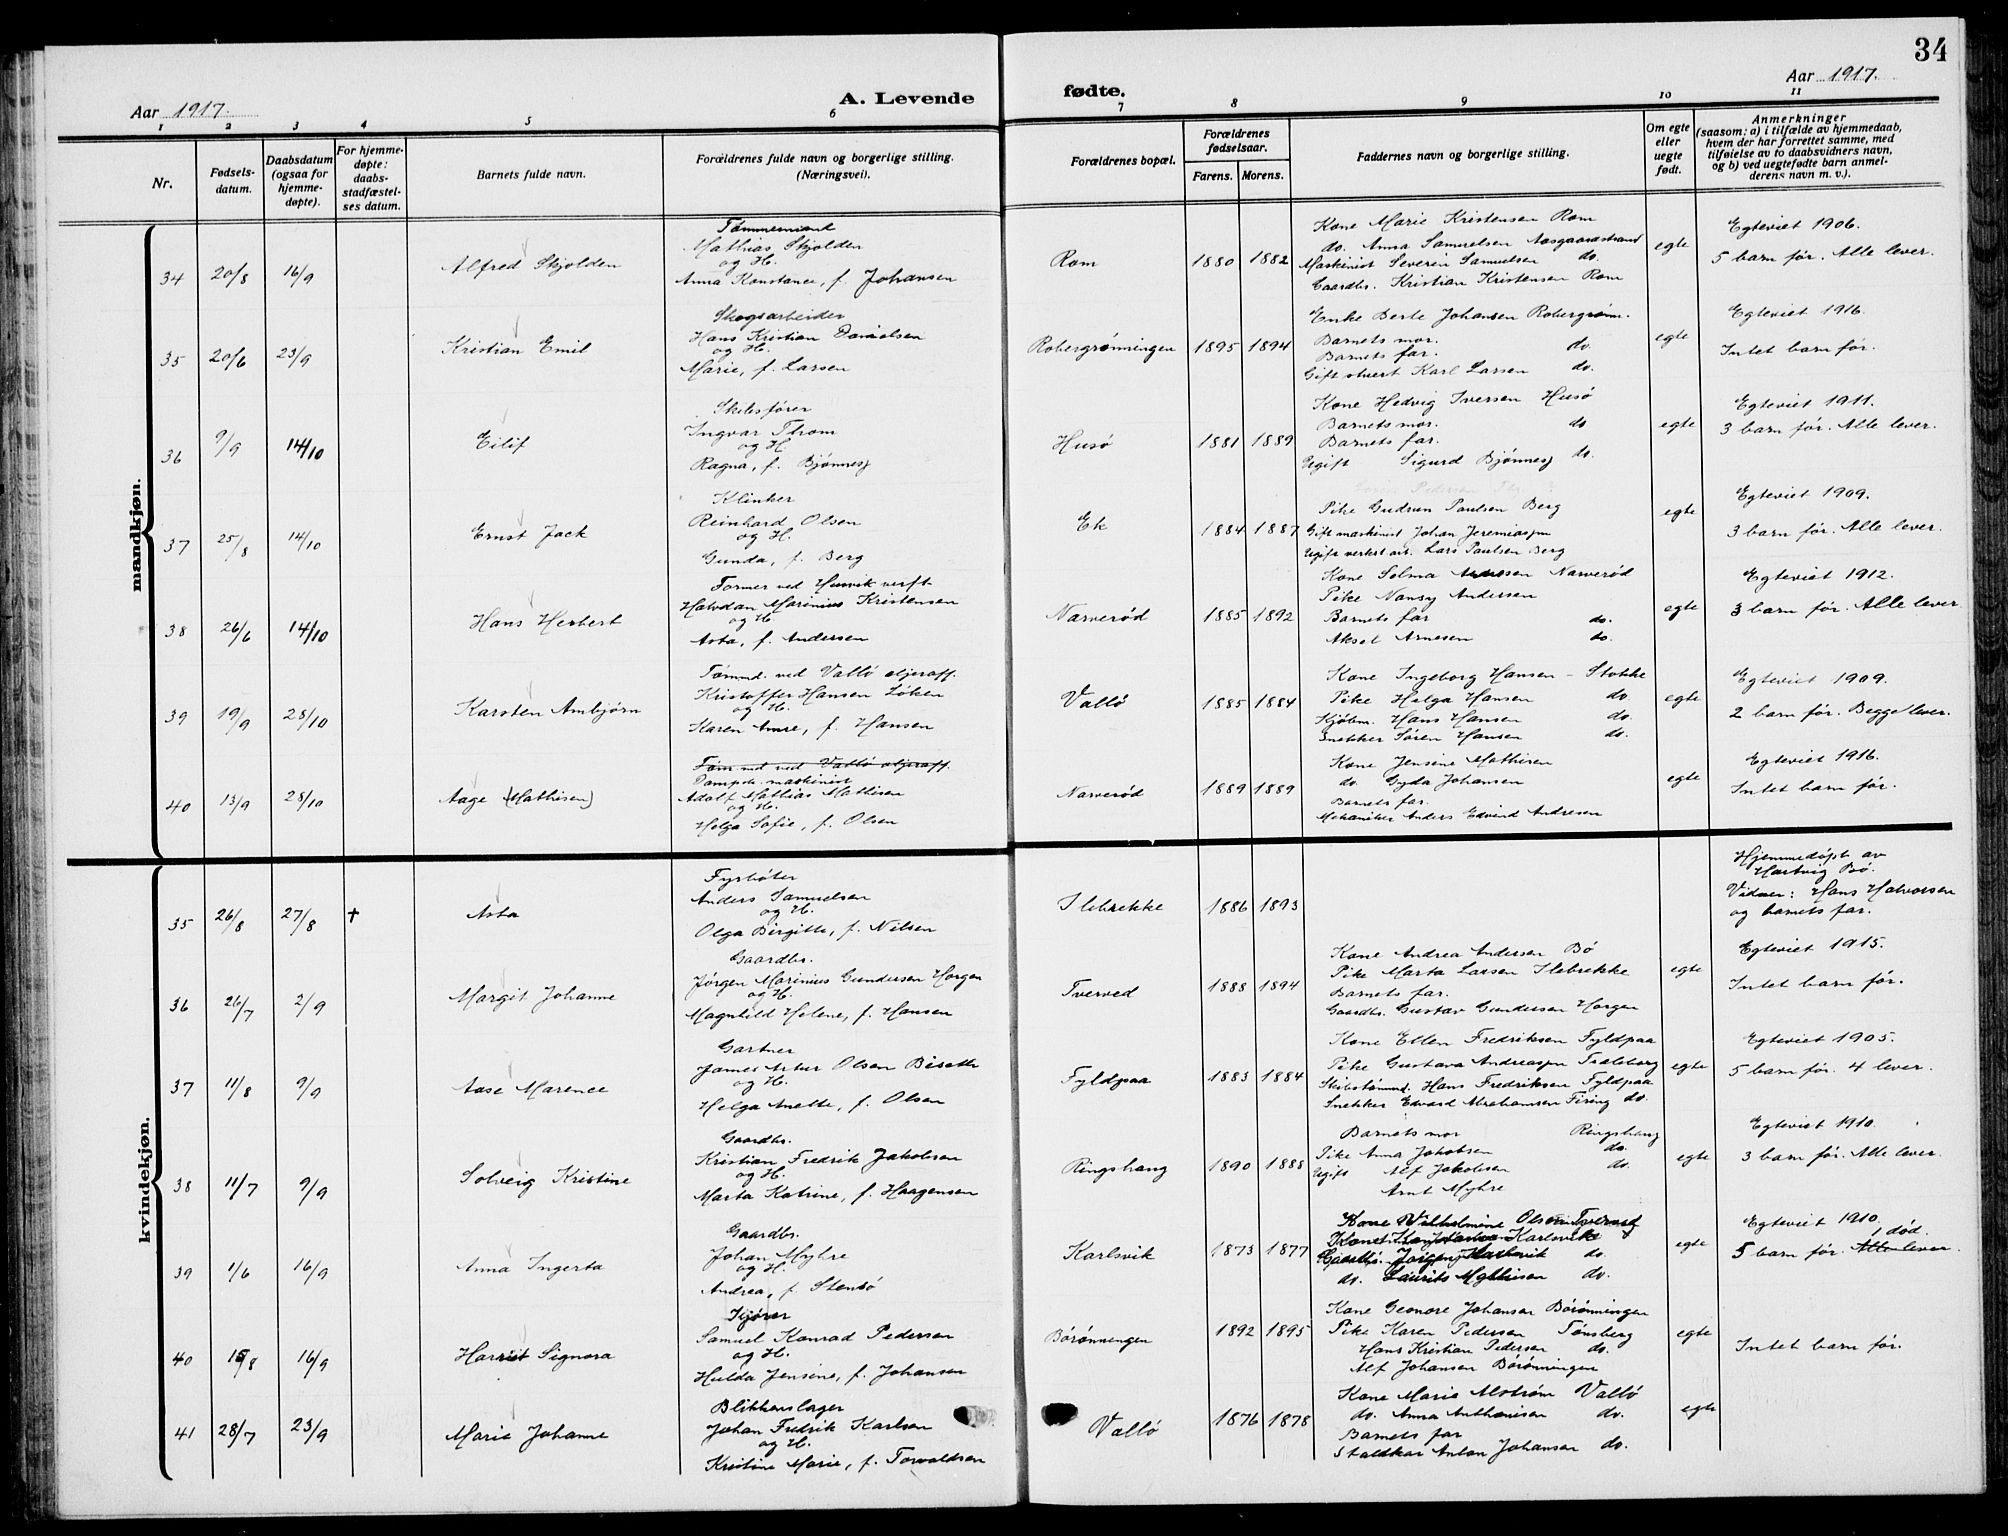 34
Aar 1917.
A. Levende
fødte.
Aar 1917.
1 2 3 4 5 6 7 8 9 10 11
Nr.
Fødsels-
datum.
Daabsdatum
(ogsaa for
hjemme-
døpte).
For hjemme-
døpte:
daabs-
stadfæstel-
ses datum.
Barnets fulde navn.
Forældrenes fulde navn og borgerlige stilling.
(Næringsvei).
Forældrenes bopæl.
Forældrenes
fødselsaar.
Farens. Morens.
Faddernes navn og borgerlige stilling.
Om egte
eller
uegte
født.
Anmerkninger
(saasom: a) i tilfælde av hjemmedaab,
hvem der har forrettet samme, med
tilføielse av to daabsvidners navn,
og b) ved uegtefødte barn anmel-
derens navn m. v.).
mandkjøn.
34 20/8 16/9 Alfred Skjolden
Tømmermand
Mathias Skjolden
og H.
Anna Konstance, f. Johansen
Rom 1880 1882
Kone Marie Kristensen Rom
do. Anna Samuelsen Aasgaardstrand
Maskinist Severin Samuelsen do.
Gaardbr. Kristian Kristensen Rom
egte
Egteviet 1906.
5 barn før. Alle lever.
35 20/6 23/9 Kristian Emil
Skogsarbeider
Hans Kristian Danielsen
og H.
Marie, f. Larsen
Robergrønningen 1895 1894
Enke Berte Johansen Robergrønn.
Barnets mor.
Barnets far. do.
Gift stuert Karl Larsen do.
egte
Egteviet 1916.
Intet barn før.
36 9/9 14/10 Eilif
Skibsfører
Ingvar Thom
og H.
Ragna, f. Bjønnes
Husø 1881 1889
Kone Hedvig Iversen Husø
Barnets mor. do
Barnets far.
Ugift Sigurd Bjønnes do.
egte
Egteviet 1911.
3 barn før. Alle lever.
37 25/8 14/10 Ernst Jack
Klinker
Reinhard Olsen
og H.
Gunda, f. Berg
Ek 1884 1887
Pike Gudrun Paulsen Berg
Gift maskinist Johan Jeremiassen
Ugift verkst.arb. Lars Paulsen Berg
egte
Egteviet 1909.
3 barn før. Alle lever.
38 26/6 14/10 Hans Herbert
Former ved Husvik verft
Halvdan Marinius Kristensen
og H.
Asta, f. Andersen
Narverød 1885 1892
Kone Selma Arnesen Narverød
Pike Nansy Andersen
Barnets far do.
Aksel Arnesen do.
egte
Egteviet 1912.
3 barn før. Alle lever.
39 19/9 28/10 Karsten Ambjørn
Tømmd. ved Vallø oljeraff.
Kristoffer Hansen Løken
og H.
Karen Amre, f. Hansen
Vallø 1885 1884
Kone Ingeborg Hansen - Stokke
Pike Helga Hansen do
Kjøbm. Hans Hansen do.
Snekker Søren Hansen do.
egte
Egteviet 1909.
2 barn før. Begge lever.
40 13/9 28/10 Aage (Mathisen)
Tømmd ved Vallø oljeraff.
Dampsk. maskinist
Adolf Mathias Mathisen
og H.
Helga Sofie, f. Olsen
Narverød 1889 1889
Kone Jensine Mathisen
do. Gyda Johansen
Barnets far.
Mekaniker Anders Edvind Andresen
egte
Egteviet 1916.
Intet barn før.
kvindekjøn.
35 26/8 27/8 † Asta
Fyrbøter
Anders Samuelsen
og H.
Olga Birgitte, f. Nilsen
Ilebrekke 1886 1893
Hjemmedøpt av
Hartvig Bø.
Vidner: Hans Halvorsen
og barnets far.
36 26/7 2/9 Margit Johanne
Gaardbr.
Jørgen Marinius Gundersen Horgen
og H.
Magnhild Helene, f. Hansen
Tverved 1888 1894
Kone Andrea Andersen Bø
Pike Marta Larsen Ilebrekke
Barnets far.
Gaardbr. Gustav Gundersen Horgen
egte
Egteviet 1915.
Intet barn før.
37 11/8 9/9 Aase Marence
Gartner
James Artur Olsen Biseth
og H.
Helga Anette, f. Olsen
Fyldpaa 1883 1884
Kone Ellen Fredriksen Fyldpaa
Pike Gustava Andreassen Træleborg
Skibstømmd. Hans Fredriksen Fyldpaa
Snekker Edvard Abrahamsen Firing do.
egte
Egteviet 1905.
5 barn før. 4 lever.
38 11/7 9/9 Solveig Kristine
Gaardbr.
Kristian Fredrik Jakobsen
og H.
Marta Katrine, f. Haagensen
Ringshaug 1890 1888
Barnets mor Ringshaug
Pike Anna Jakobsen do.
Ugift Alf Jakobsen do.
Arnt Myhre
egte
Egteviet 1910.
3 barn før. Alle lever.
39 1/6 16/9 Anna Ingerta
Gaardbr.
Johan Myhre
og H.
Andrea, f. Stensø
Karlsvik 1873 1877
Kone Wilhelmine Olsen Tverved
Karlsvik
Gaardbr. Jørgen Karlsvik do.
do. Laurits Mathisen do.
egte
Egteviet 1910.
1 død.
5 barn før. Alle lever.
40 15/8 16/9 Harriet Signora
Kjører
Samuel Konrad Pedersen
og H.
Hulda Jensine, f. Johansen
Børønningen 1892 1895
Kone Leonore Johansen Børønningen
Pike Karen Pedersen Tønsberg
Hans Kristian Pedersen do.
Alf Johansen Børønningen
egte
Intet barn før.
41 28/7 23/9 Marie Johanne
Blikkenslager
Johan Fredrik Karlsen
og H.
Kristine Marie, f. Torvaldsen
Vallø 1876 1878
Kone Marie Alstrøm Vallø
do. Anna Anthonisen do.
Barnets far
Staldkar Anton Johansen do.
egte